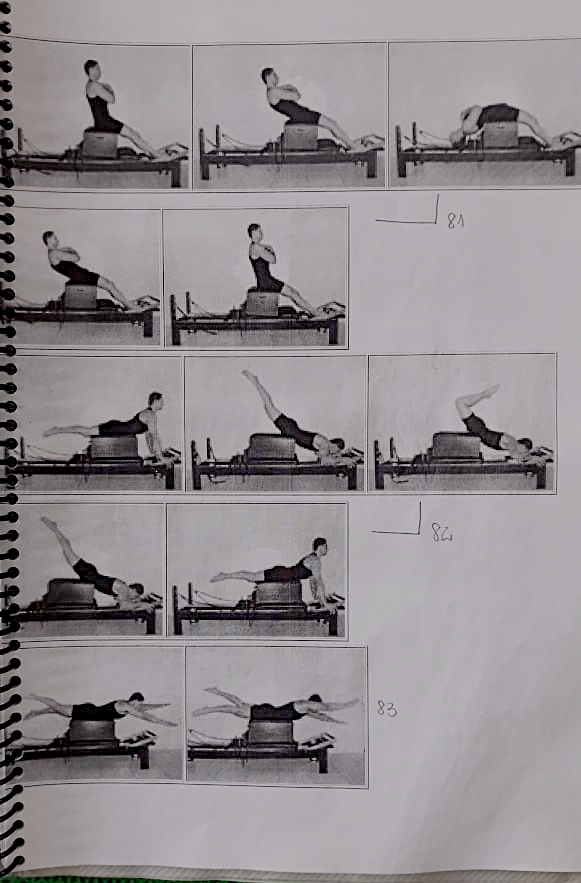 81
82
83